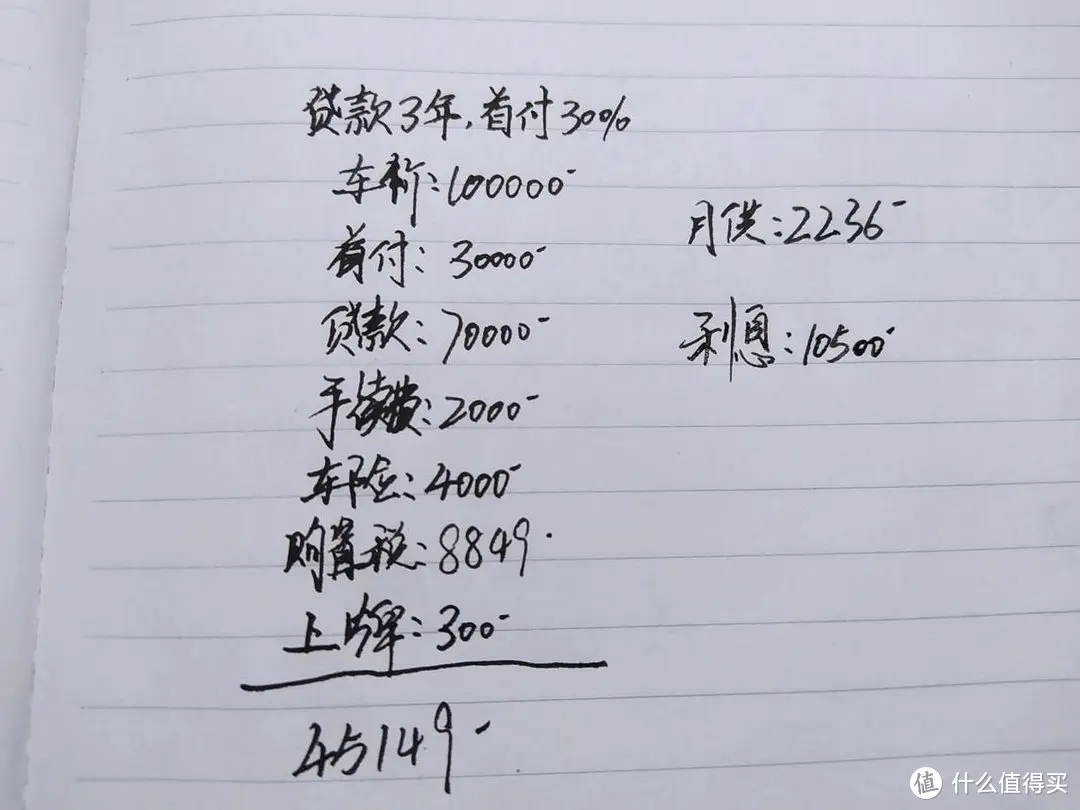 贷款3年,首付30%
车价:100000-
首付:30000-
贷款:70000-
手续费:2000-
车险:4000-
购置税:8849.
上牌:300-
45149-
月供:2236-
利息:10500-
值 什么值得买